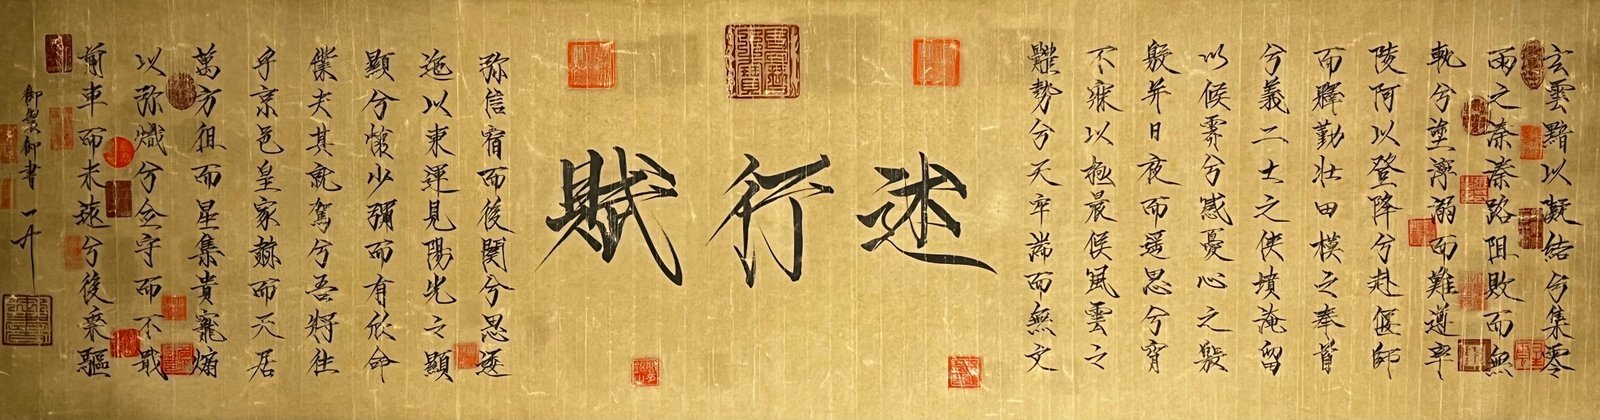 玄雲黯以凝結兮集零
雨之溱溱路阻敗而無
軌兮塗濘溺而難遵率
陵阿以登降兮赴偃師
而釋勤壯田模之奉首
兮義二士之俠墳淹留
以候霽兮感憂心之殷
殷并日夜而遥思兮宵
不寐以極晨候風雲之
體勢兮天牢湍而無文
述行賦
弥信宿而後闋兮思逶
迤以東運見陽光之顥
顥兮懷少彌而有欣命
僕夫其就駕兮吾將往
乎京邑皇家赫而天居
萬方徂而星集貴寵煽
以弥熾兮僉守而不戢
前車而未遠兮後乘驅
御製御書